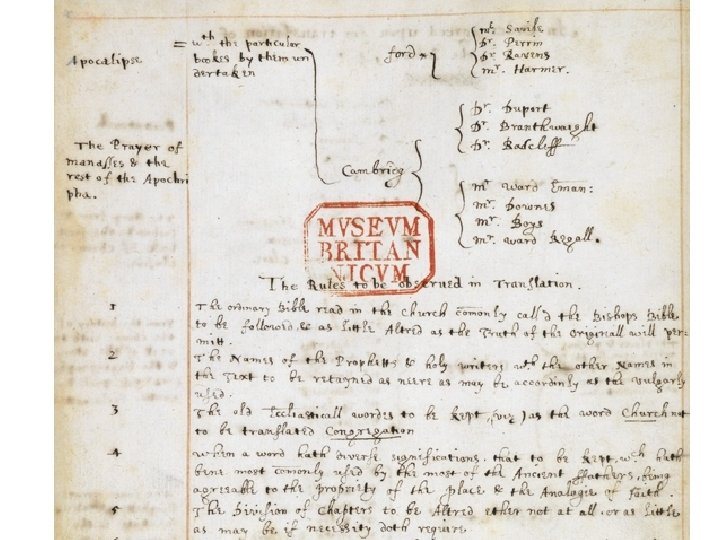 Apocalipse
= wth the particular
bookes by them un
dertaken
ford
mr. Savile
Dr. Perrin
Dr. Ravens
mr. Harmer.
The Prayer of
Manasses & the
rest of the Apochri
pha.
Cambridg
Dr. Duport
Dr. Branthwaight
Dr. Radcliff
mr. Ward Eman:
mr. Downes
mr. Boys
mr. Ward Regall.
MVSEVM
BRITAN
NICVM
The Rules to be observed in Translation.
1
The ordinary Bible read in the Church comonly call'd the Bishops Bible
to be followed & as little Altred as the Truth of the Originall will per=
mitt.
2
The Names of the Prophetts & holy writers wth the other Names in
the Text to be retayned as neere as may be accordinly as the vulgarly
used.
3
The old Ecclesiasticall wordes to be kept (viz) as the word Church not
to be translated Congregation
4
When a word hath diverse significations that to be kept wch hath
bene most comonly used by the most of the Ancient ffathers being
agreeable to the propriety of the place & the Analogie of faith.
5
The Division of Chapters to be Altred ether not at all or as little
as may be if necessity doth require